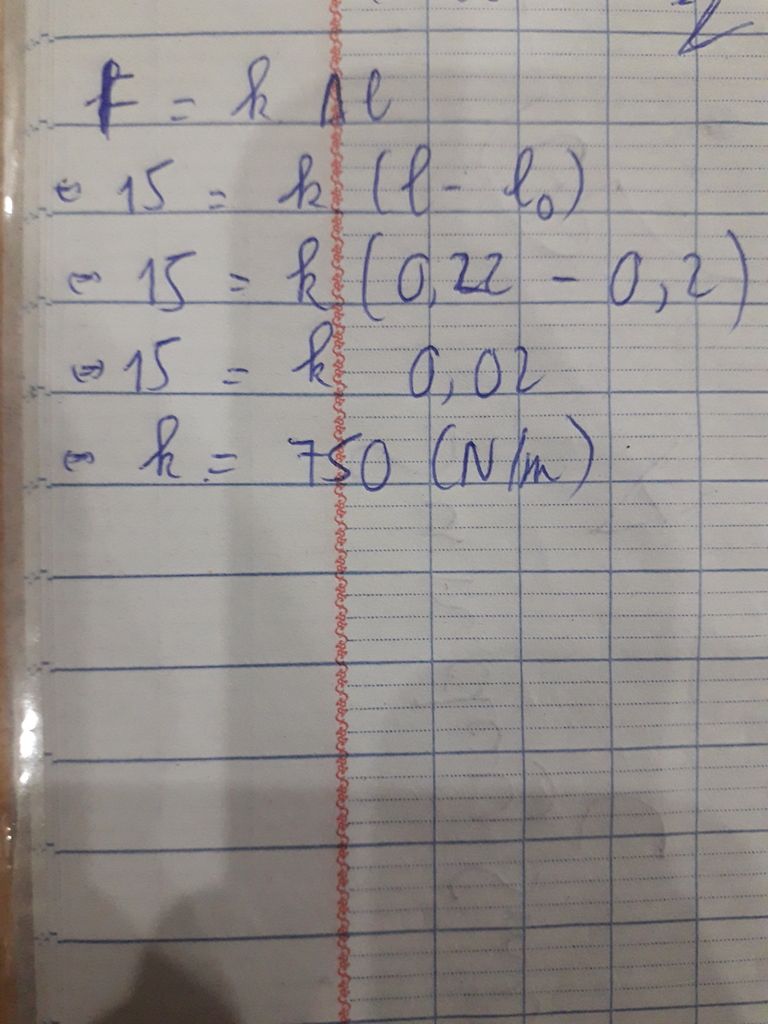 F = k Δl
⇔ 15 = k (l - l₀)
⇔ 15 = k (0,22 - 0,2)
⇔ 15 = k 0,02
⇔ k = 750 (N/m)